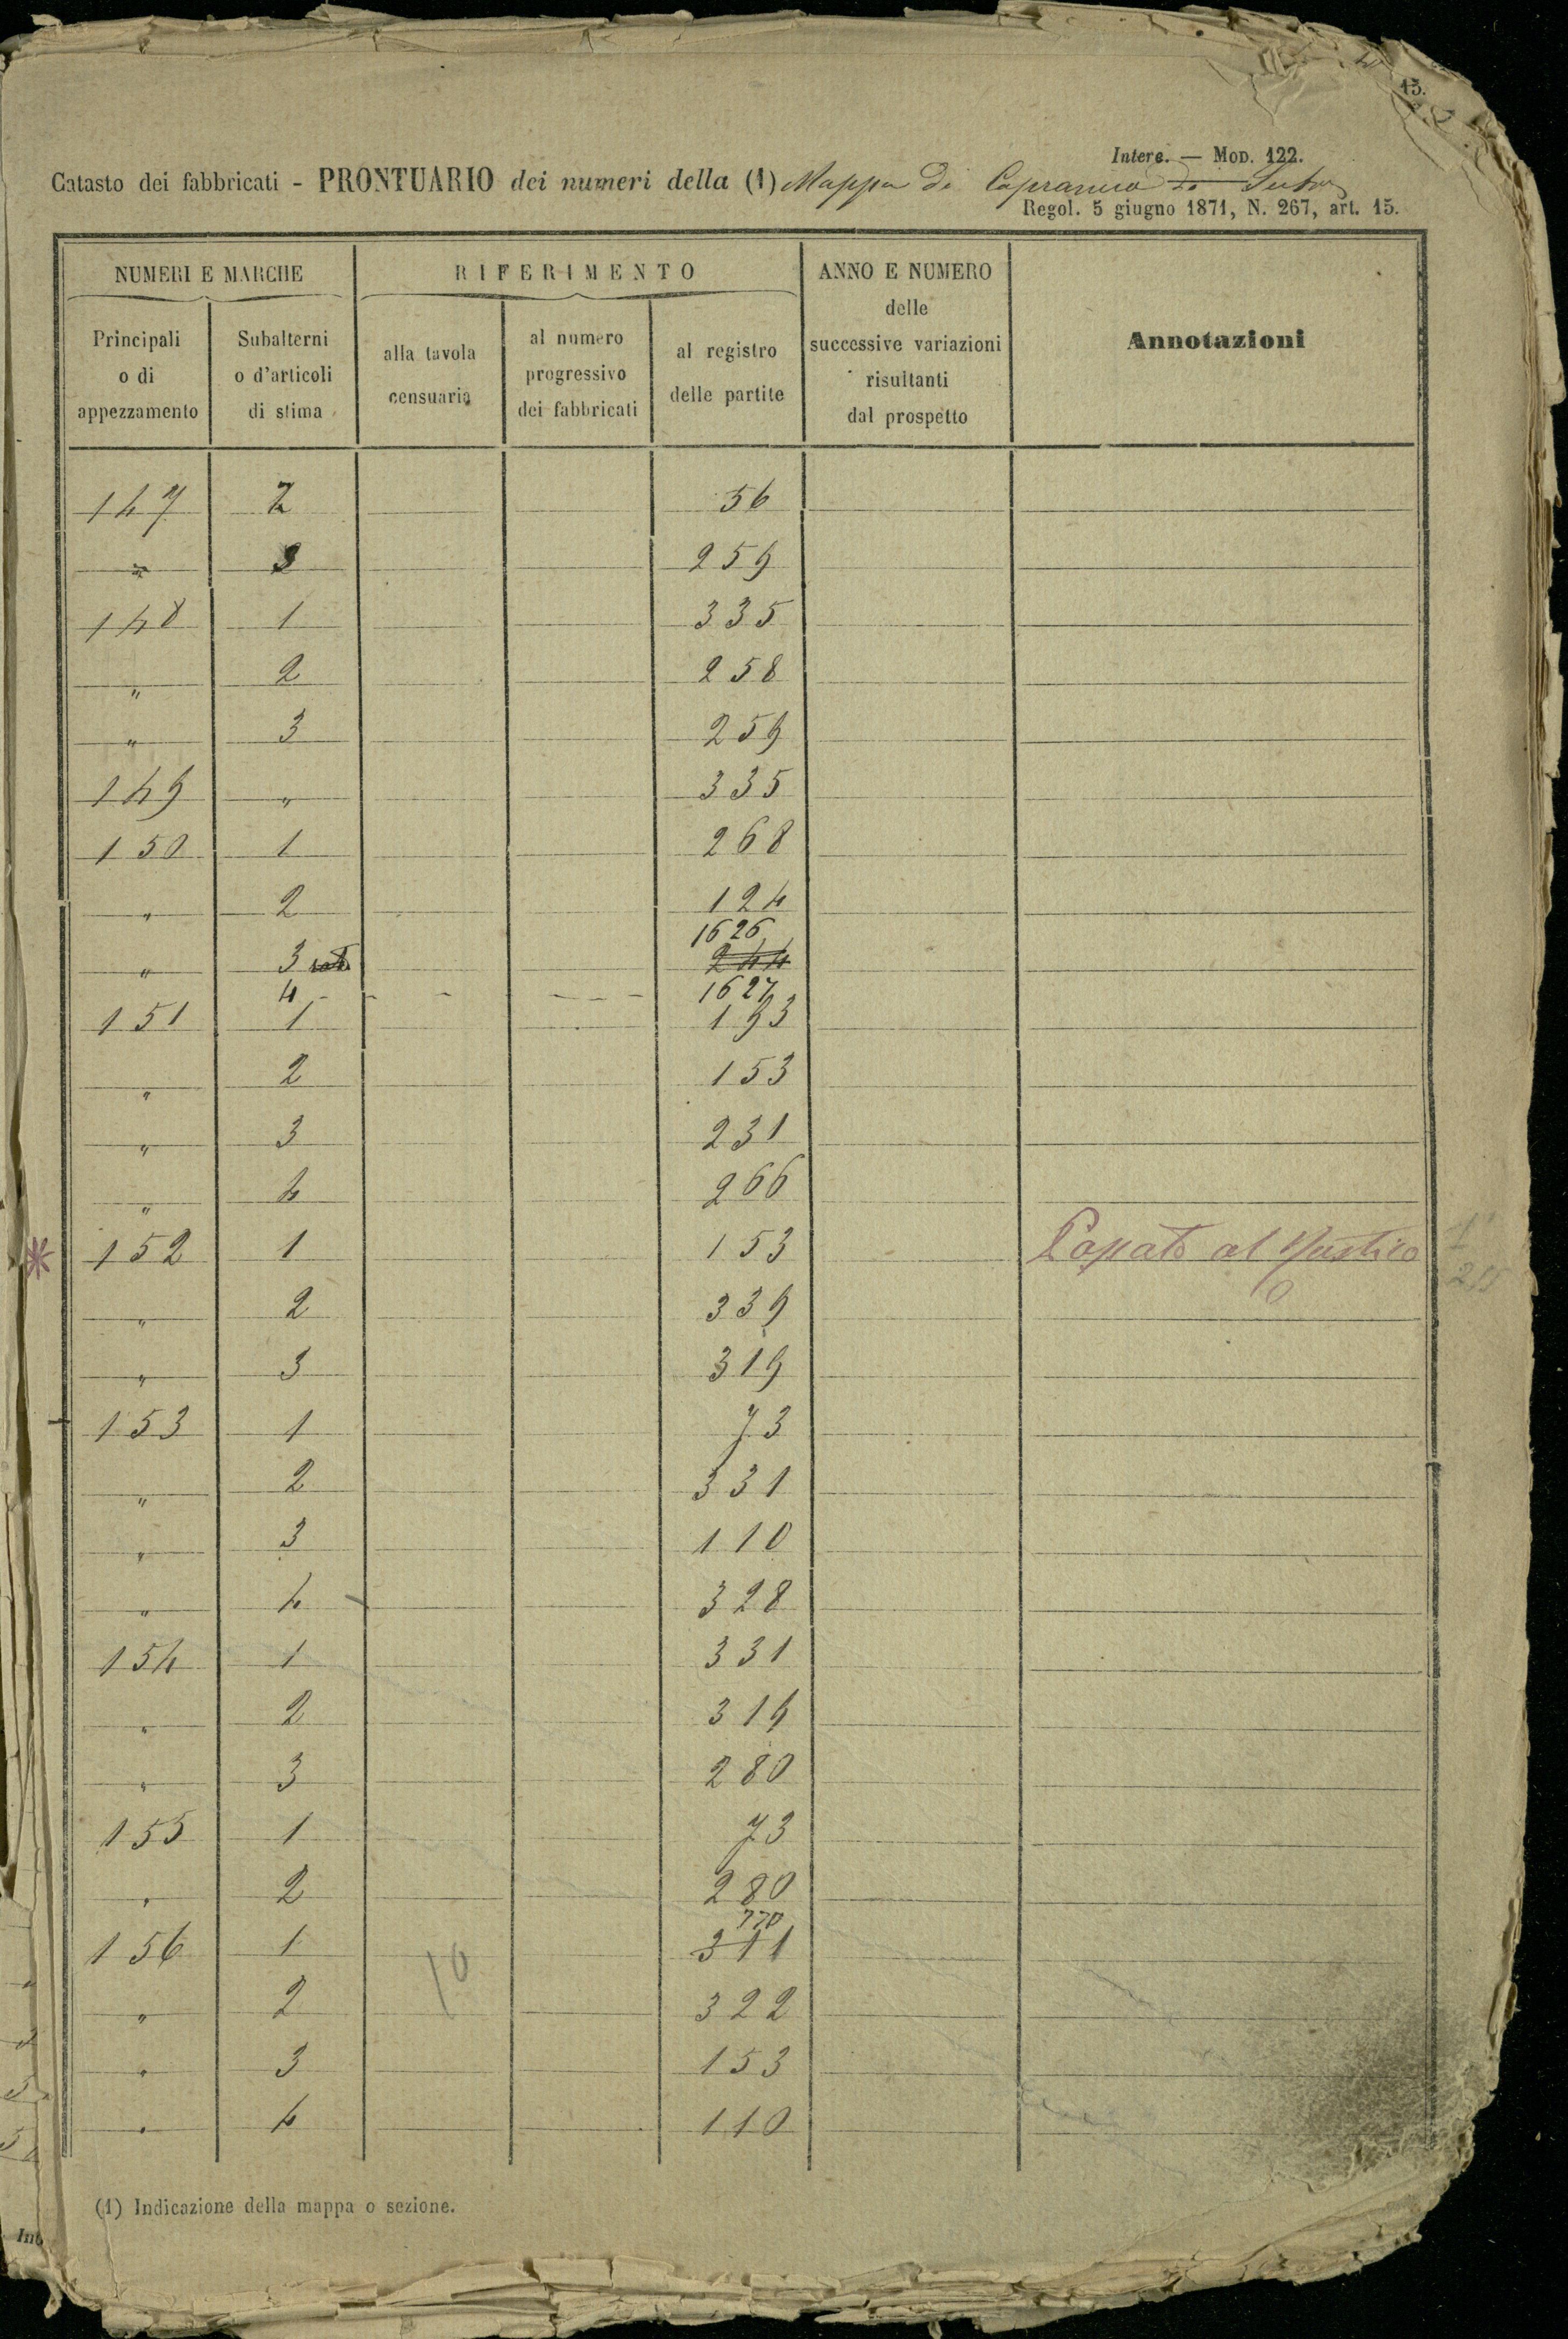 13.
Interc. — Mod. 122.
Catasto dei fabbricati - PRONTUARIO dei numeri della (1) Mappa di Capranica di Sutri
Regol. 5 giugno 1871, N. 267, art. 15.
NUMERI E MARCHE RIFERIMENTO ANNO E NUMERO delle successive variazioni risultanti dal prospetto Annotazioni
Principali o di appezzamento Subalterni o d'articoli di stima alla tavola censuaria al numero progressivo dei fabbricati al registro delle partite
147 2 56
" 3 259
148 1 335
" 2 258
" 3 259
149 " 335
150 1 268
" 2 124
1626
" 3 244
4 - - - - - - 1627
151 1 193
" 2 153
" 3 231
" 4 266
152 1 153 al Rustico
" 2 339
" 3 319
153 1 73
" 2 331
" 3 110
" 4 328
154 1 331
" 2 319
" 3 280
155 1 73
" 2 280
770
156 1 311
10
" 2 322
" 3 153
" 4 110
(1) Indicazione della mappa o sezione.
Int